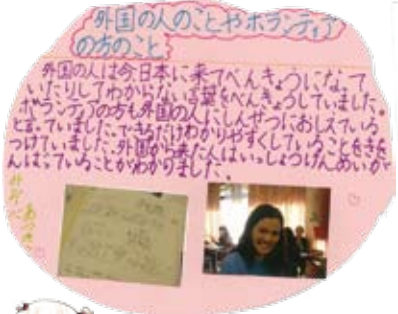 外国の人のことやボランティア
の方のこと
外国の人は今日本に来てべんきょうになって
いたりしてわからない言葉をべんきょうしていました。
ボランティアの方も外国の人にしんせつにおしえている
と言っていました。できるだけわかりやすくしていることをきを
つけていました。外国から来た人はいっしょうけんめいが
んばっていることがわかりました。